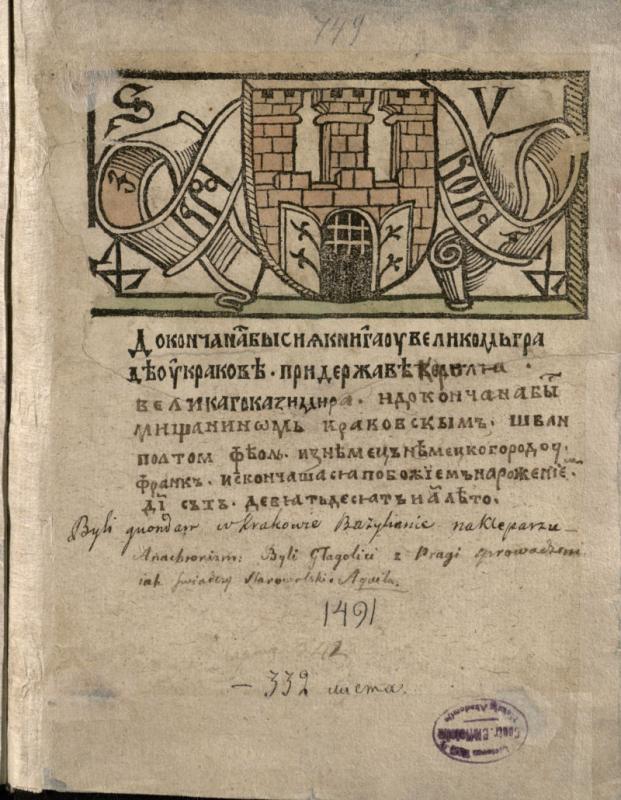 749
S V
Докончана бысиꙗ книга оу великомь гра
дѣ оу краковѣ · при державѣ Королꙗ ·
великаго казимира · и докончана бы
мищаниномь краковскымъ · шваи
полтом феоль · изнѣмець нѣмецкого родоу ·
франкъ · искончашасѧ по божїемъ нарожениѥ ·
дї сътъ · девꙗтьдесꙗтъ и а҃ лѣто ·
Byli quondam w krakowie Bazylianie na Kleparzu
Anachronizm: Byli Glagolici z Pragi sprowadzeni
jak świadczy Starowolski. Aquila.
1491
342
— 332 листа.